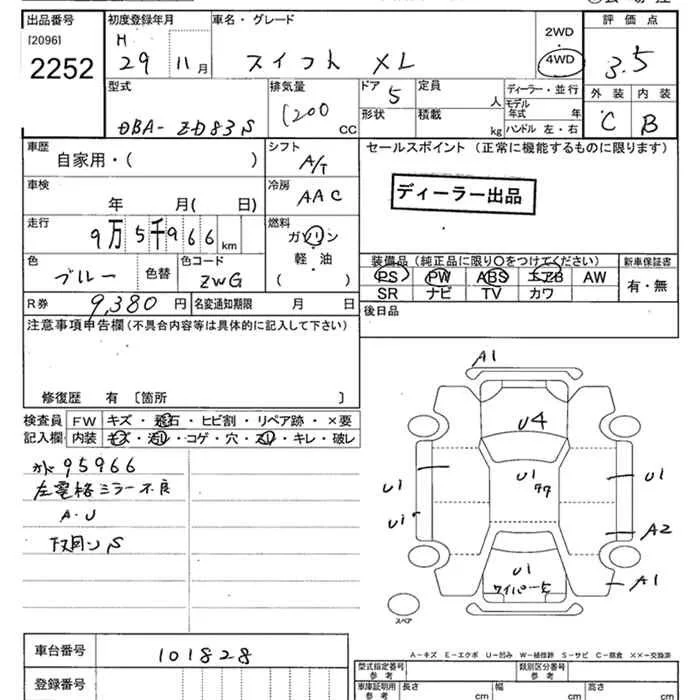 出品番号 初度登録年月 車名・グレード 2WD 評価点
[2096] H
2252 29 11月 スイフト XL 4WD 3.5
型式 排気量 ドア 5 定員 人 ディーラー・並行 外装 内装
DBA-ZD83S 1200 CC 形状 積載 kg モデル年式 年 C B
ハンドル 左・右
車歴 シフト セールスポイント (正常に機能するものに限ります)
自家用・( ) A/T
車検 冷房 ディーラー出品
年 月( 日) AAC
走行 燃料
9万5千966km ガソリン
軽・油
( )
色 色コード 装備品 (純正品に限り○をつけてください) 新車保証書
ブルー 色替 ZWG PS PW ABS エアB AW 有・無
SR ナビ TV カワ
R券 9,380円 名変通知期限 月 日 後日品
注意事項申告欄 (不具合内容等は具体的に記入して下さい)
修復歴 有 〔箇所 〕
検査員 FW キズ・飛石・ヒビ割・リペア跡・×要
記入欄 内装 キズ・汚れ・コゲ・穴・スレ・キレ・破レ
95966
左電格ミラー不良
A・U
A1
U4
U1 U1 U1
U1 A2
U1 A1
ワイパー
スペア
A-キズ E-エクボ U-凹み W-補修跡 S-サビ C-腐食 ××-交換済
車台番号 101828
登録番号
型式指定番号 類別区分番号
車庫証明用参考 長さ cm 幅 cm 高さ cm